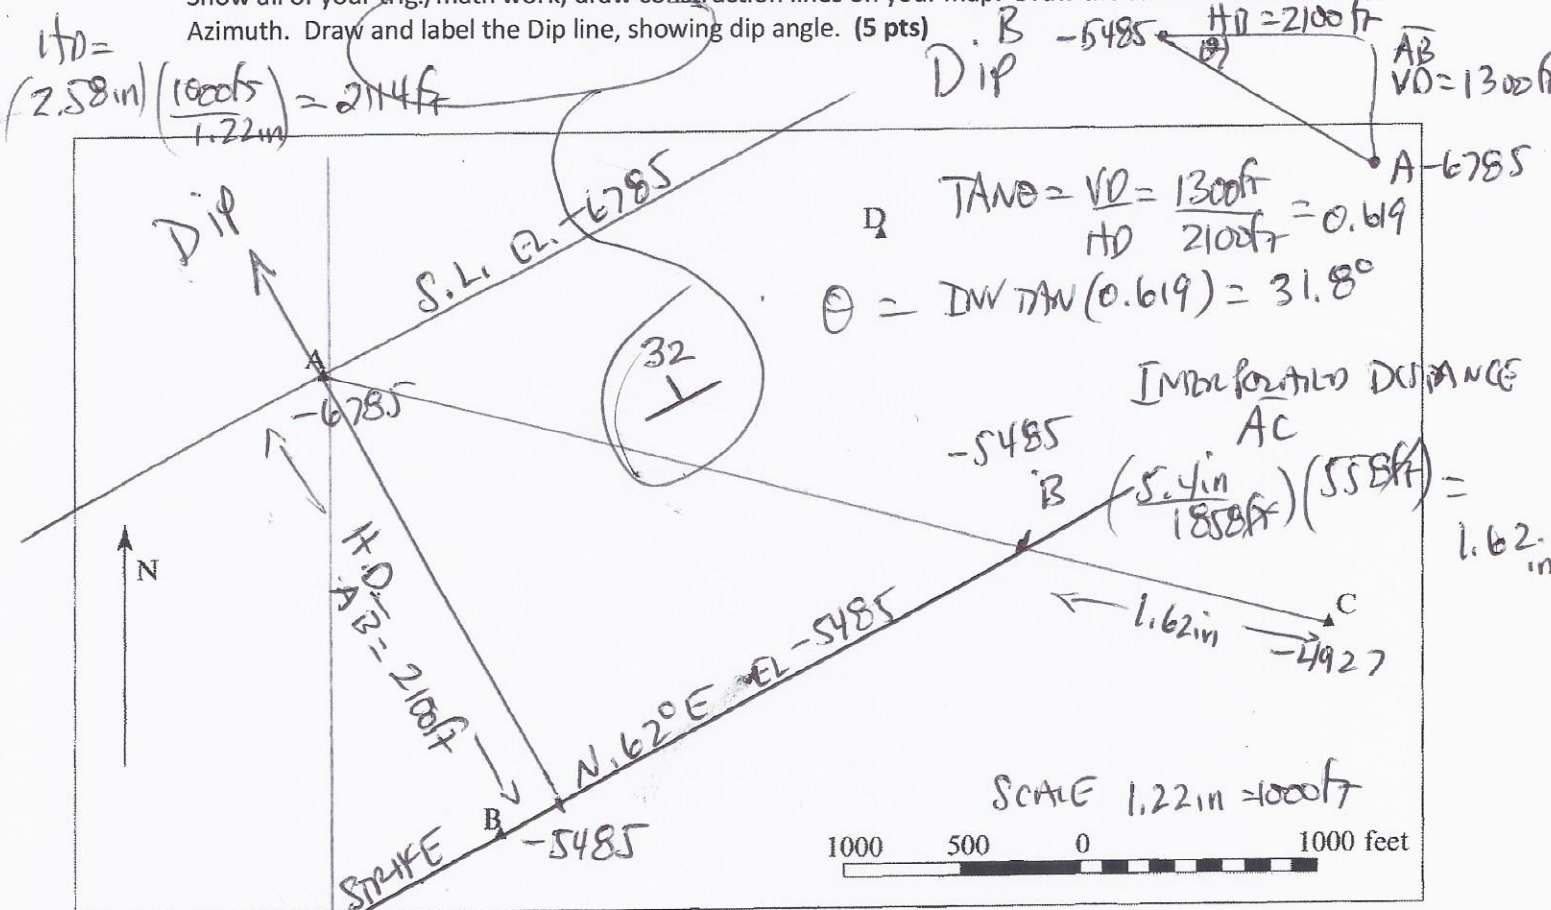 Azimuth. Draw and label the Dip line, showing dip angle. (5 pts)
HD=
(2.58in)(1000ft/1.22in) = 2114ft
B -5485 HD=2100ft
Dip
θ
AB
VD=1300ft
A-6785
Dip
S.L. EL. -6785
D
TANθ = VD/HD = 1300ft/2100ft = 0.619
θ = INV TAN(0.619) = 31.8°
A
-6785
32
INTERPOLATED DISTANCE
AC
-5485
B
(5.4in/1858ft)(558ft) =
1.62in
N
H.D.
AB = 2100ft
C
1.62in
-4927
N.62°E EL -5485
SCALE 1.22in =1000ft
B
-5485
STRIKE
1000 500 0 1000 feet